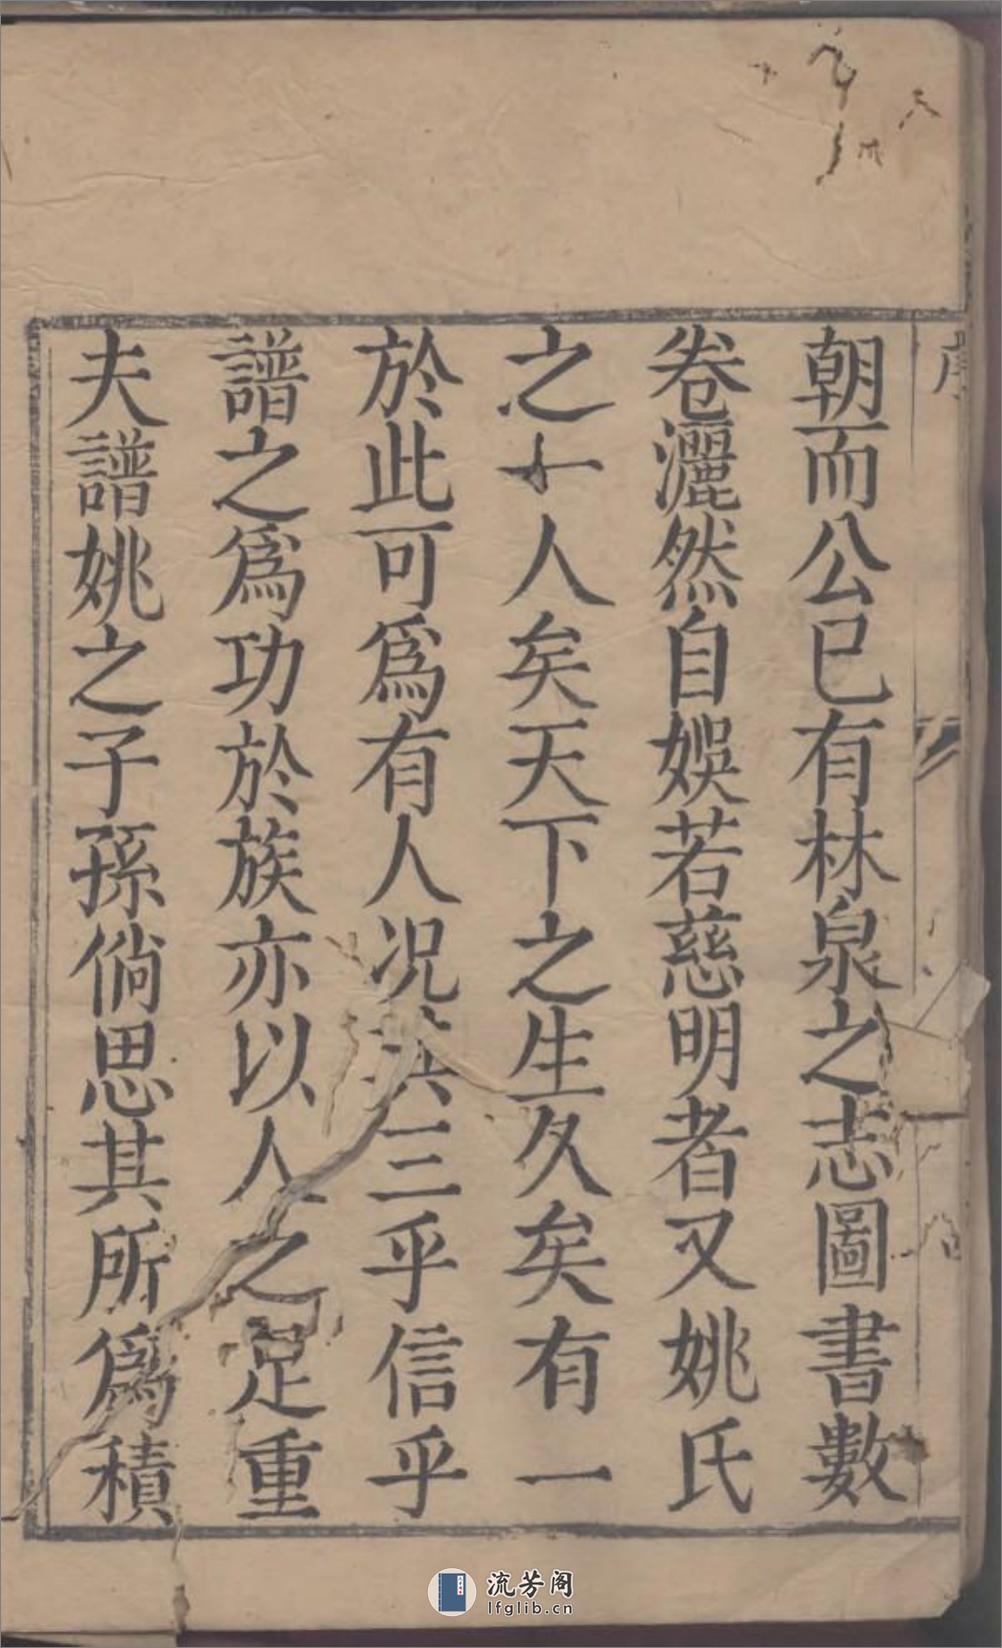 序
朝而公已有林泉之志圖書數
卷灑然自娛若慈明者又姚氏
之十人矣天下之生久矣有一
於此可為有人況其三乎信乎
譜之為功於族亦以人之足重
夫譜姚之子孫倘思其所為積
流芳阁
lfglib.cn